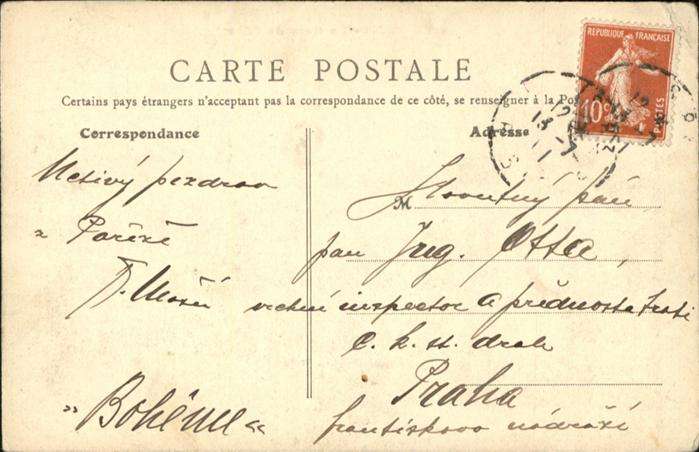 CARTE POSTALE
Certains pays étrangers n'acceptant pas la correspondance de ce côté, se renseigner à la Pos
Correspondance
Adresse
REPUBLIQUE FRANÇAISE
10c
POSTES
Uctivý pozdrav
z Paříže
"Bohême"
M Slovutný pán
pan Ing. Otta,
vrchní inspector a přednosta trati
c. k. st. drah
Praha
Františkovo nádraží